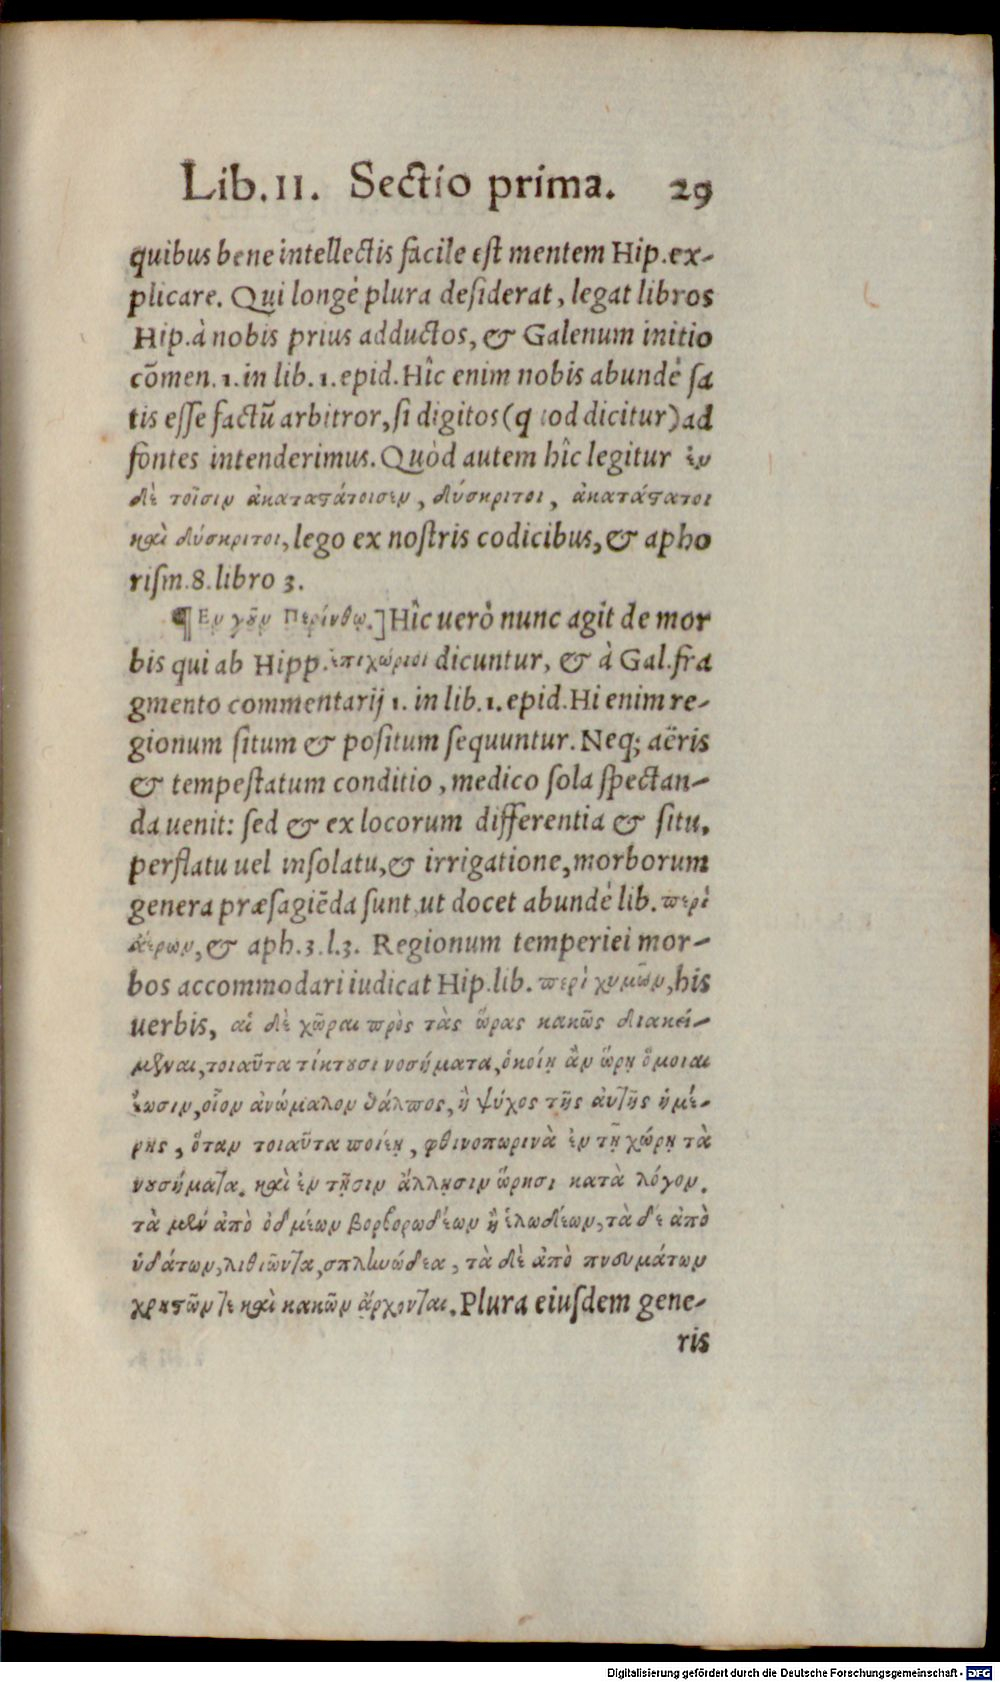 Lib. II. Sectio prima. 29
quibus bene intellectis facile est mentem Hip. ex-
plicare. Qui longè plura desiderat, legat libros
Hip. à nobis prius adductos, & Galenum initio
cōmen. 1. in lib. 1. epid. Hîc enim nobis abundè sa
tis esse factū arbitror, si digitos (quod dicitur) ad
fontes intenderimus. Quòd autem hîc legitur ἐν
δὲ τοῖσιν ἀκαταστάτοισεν, δύσκριτοι, ἀκατάστατοι
καὶ δύσκριτοι, lego ex nostris codicibus, & apho
rism. 8. libro 3.
¶ Εν γοῦν Περίνθῳ.] Hîc uerò nunc agit de mor
bis qui ab Hipp. ἐπιχώριοι dicuntur, & à Gal. fra
gmento commentarij 1. in lib. 1. epid. Hi enim re-
gionum situm & positum sequuntur. Neq; aëris
& tempestatum conditio, medico sola spectan-
da uenit: sed & ex locorum differentia & situ,
perflatu uel insolatu, & irrigatione, morborum
genera præsagiēda sunt, ut docet abundè lib. περὶ
ἀέρων, & aph. 3. l. 3. Regionum temperiei mor-
bos accommodari iudicat Hip. lib. περὶ χυμῶν, his
uerbis, αἱ δὲ χῶραι πρὸς τὰς ὥρας κακῶς διακεί-
μεναι, τοιαῦτα τίκτουσι νοσήματα, ὁκοίη ἂν ὥρη ὅμοιαι
ἔωσιν, οἷον ἀνώμαλον θάλπος, ἢ ψύχος τῆς αὐτῆς ἡμέ-
ρης, ὅταν τοιαῦτα ποιέῃ, φθινοπωρινὰ ἐν τῇ χώρῃ τὰ
νουσήματα. καὶ ἐν τῇσιν ἄλλῃσιν ὥρῃσι κατὰ λόγον.
τὰ μὲν ἀπὸ ὀδμέων βορβορωδέων ἢ ἑλωδέων, τὰ δὲ ἀπὸ
ὑδάτων, λιθιῶντα, σπληνώδεα, τὰ δὲ ἀπὸ πνευμάτων
χρηστῶν τε καὶ κακῶν ἄρχονται. Plura eiusdem gene-
ris
Digitalisierung gefördert durch die Deutsche Forschungsgemeinschaft - DFG